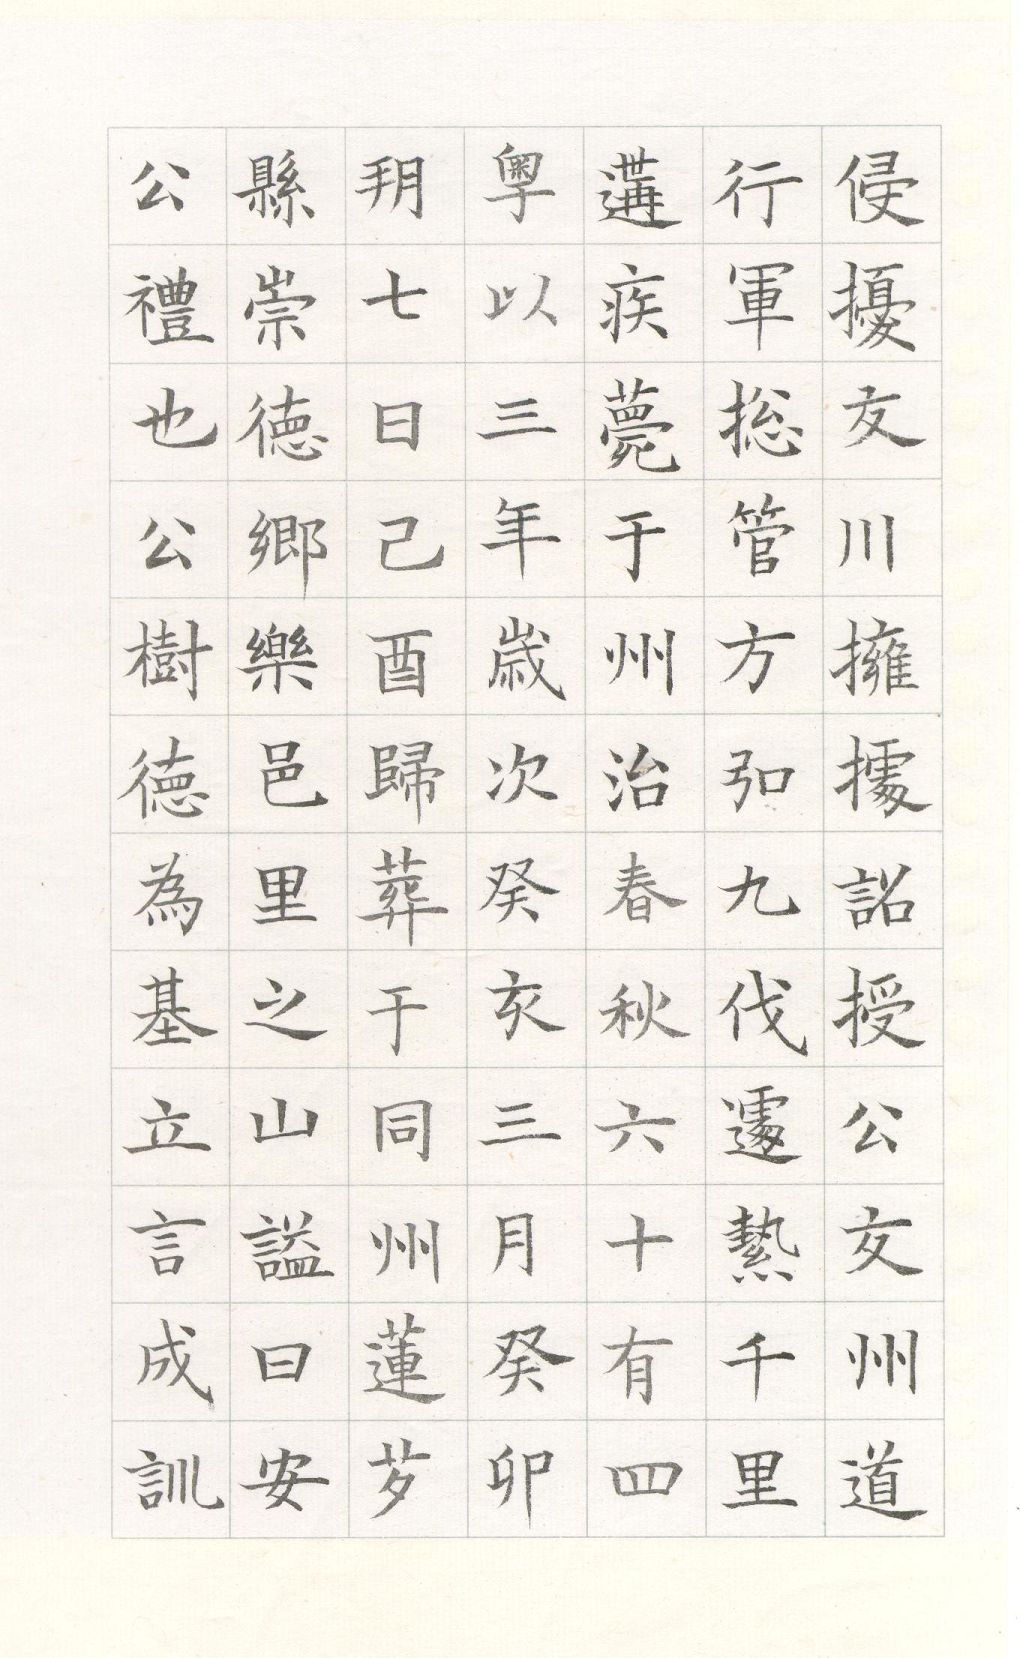 侵擾交川擁據詔授公交州道
行軍捴管方弘九伐遽熱千里
遘疾薨于州治春秋六十有四
粤以三年歲次癸亥三月癸卯
朔七日己酉歸葬于同州蓮芍
縣崇徳鄉樂邑里之山謚曰安
公禮也公樹徳為基立言成訓